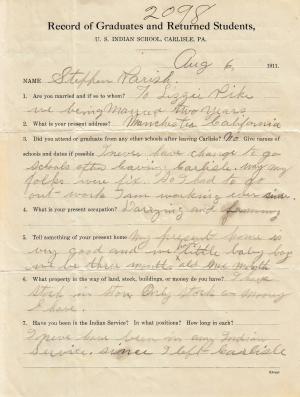 2098
Record of Graduates and Returned Students,
U. S. INDIAN SCHOOL, CARLISLE, PA.
Aug 6, 1911.
NAME Stephen Parish
1. Are you married and if so to whom? To Lizzie Pike
we being Married two years
2. What is your present address? Manchester California
3. Did you attend or graduate from any other schools after leaving Carlisle? No. Give names of
schools and dates if possible I never have change to go
Schools after leaving Carlisle. why my
folks were Six. So I had to go
out work I am working ever since
4. What is your present occupation? and farming
5. Tell something of your present home My present home is
very good and we little baby boy
be three months old
6. What property in the way of land, stock, buildings, or money do you have? I have
Stock in Only Stock is money
I have.
7. Have you been in the Indian Service? In what positions? How long in each?
I never have been in any Indian
Service, since I left Carlisle